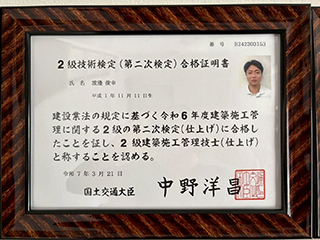 番 号 B242303153
２級技術検定(第二次検定)合格証明書
氏 名 渡邊 俊幸
平成 1年 11月 11日生
建設業法の規定に基づく令和６年度建築施工管
理に関する２級の第二次検定(仕上げ)に合格し
たことを証し、２級建築施工管理技士(仕上げ)
と称することを認める。
令和 ７年 ３月 21日
国土交通大臣 中野洋昌